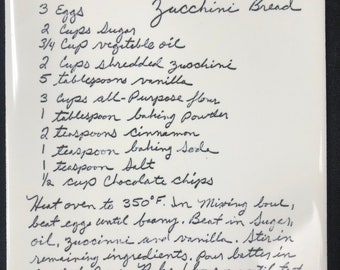 Zucchini Bread
3 Eggs
2 Cups Sugar
3/4 Cup vegetible oil
2 Cups shredded zucchini
5 tablespoons vanilla
3 Cups all-Purpose flour
1 tablespoon baking Powder
2 teaspoons cinnamon
1 teaspoon baking soda
1 teaspoon Salt
1/2 cup Chocolate chips
Heat oven to 350°F. In Mixing bowl,
beat eggs until foamy. Beat in Sugar,
oil, zuccinni and vanilla. Stir in
remaining ingredients. Pour batter in